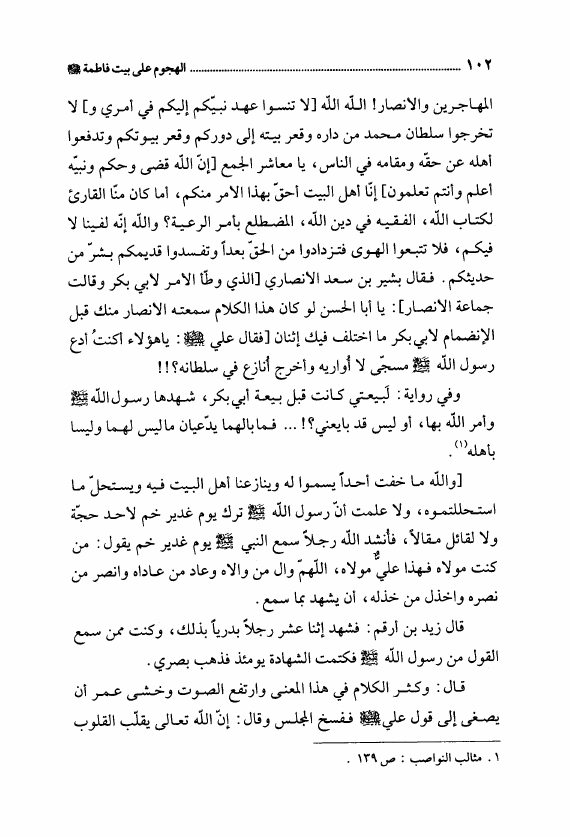 ١٠٢ ........ الهجوم على بيت فاطمة ﷺ
المهاجرين والانصار! اللّه اللّه [لا تنسوا عهد نبيّكم إليكم في أمري و] لا
تخرجوا سلطان محمد من داره وقعر بيته إلى دوركم وقعر بيوتكم وتدفعوا
أهله عن حقّه ومقامه في الناس، يا معاشر الجمع [إنّ اللّه قضى وحكم ونبيّه
أعلم وأنتم تعلمون] إنّا أهل البيت أحقّ بهذا الامر منكم، أما كان منّا القارئ
لكتاب اللّه، الفقيه في دين اللّه، المضطلع بأمر الرعية؟ واللّه إنّه لفينا لا
فيكم، فلا تتبعوا الهوى فتزدادوا من الحقّ بعداً وتفسدوا قديمكم بشرّ من
حديثكم. فقال بشير بن سعد الانصاري [الذي وطّأ الامر لابي بكر وقالت
جماعة الانصار]: يا أبا الحسن لو كان هذا الكلام سمعته الانصار منك قبل
الإنضمام لابي بكر ما اختلف فيك إثنان [فقال علي ﷺ: ياهؤلاء أكنتُ أدع
رسول اللّه ﷺ مسجّى لا أواريه وأخرج أنازع في سلطانه؟!!
وفي رواية: لَبيعتي كانت قبل بيعة أبي بكر، شهدها رسول اللّه ﷺ
وأمر اللّه بها، أو ليس قد بايعني؟! ... فما بالهما يدّعيان ما ليس لهما وليسا
بأهله(١).
[واللّه ما خفت أحداً يسموا له وينازعنا أهل البيت فيه ويستحلّ ما
استحللتموه، ولا علمت أنّ رسول اللّه ﷺ ترك يوم غدير خم لاحد حجّة
ولا لقائل مقالاً، فأنشد اللّه رجلاً سمع النبي ﷺ يوم غدير خم يقول: من
كنت مولاه فهذا عليٌّ مولاه، اللّهمّ وال من والاه وعاد من عاداه وانصر من
نصره واخذل من خذله، أن يشهد بما سمع.
قال زيد بن أرقم: فشهد إثنا عشر رجلاً بدرياً بذلك، وكنت ممن سمع
القول من رسول اللّه ﷺ فكتمت الشهادة يومئذ فذهب بصري.
قال: وكثر الكلام في هذا المعنى وارتفع الصوت وخشى عمر أن
يصغى إلى قول علي ﷺ ففسخ المجلس وقال: إنّ اللّه تعالى يقلّب القلوب
١. مثالب النواصب: ص ١٣٩.